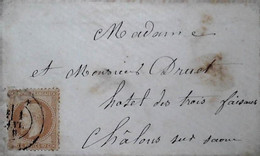 Madame
et Monsieur Druet
hotel des trois faisans
Châlons sur saone